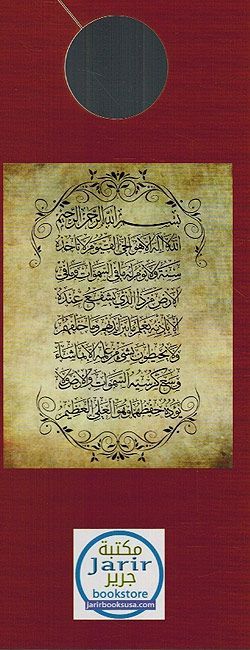 بسم الله الرحمن الرحيم
الله لا إله إلا هو الحي القيوم لا تأخذه
سنة ولا نوم له ما في السموات وما في
الأرض من ذا الذي يشفع عنده
إلا بإذنه يعلم ما بين أيديهم وما خلفهم
ولا يحيطون بشيء من علمه إلا بما شاء
وسع كرسيه السموات والأرض ولا
يؤده حفظهما وهو العلي العظيم
مكتبة
Jarir
جرير
bookstore
jarirbooksusa.com